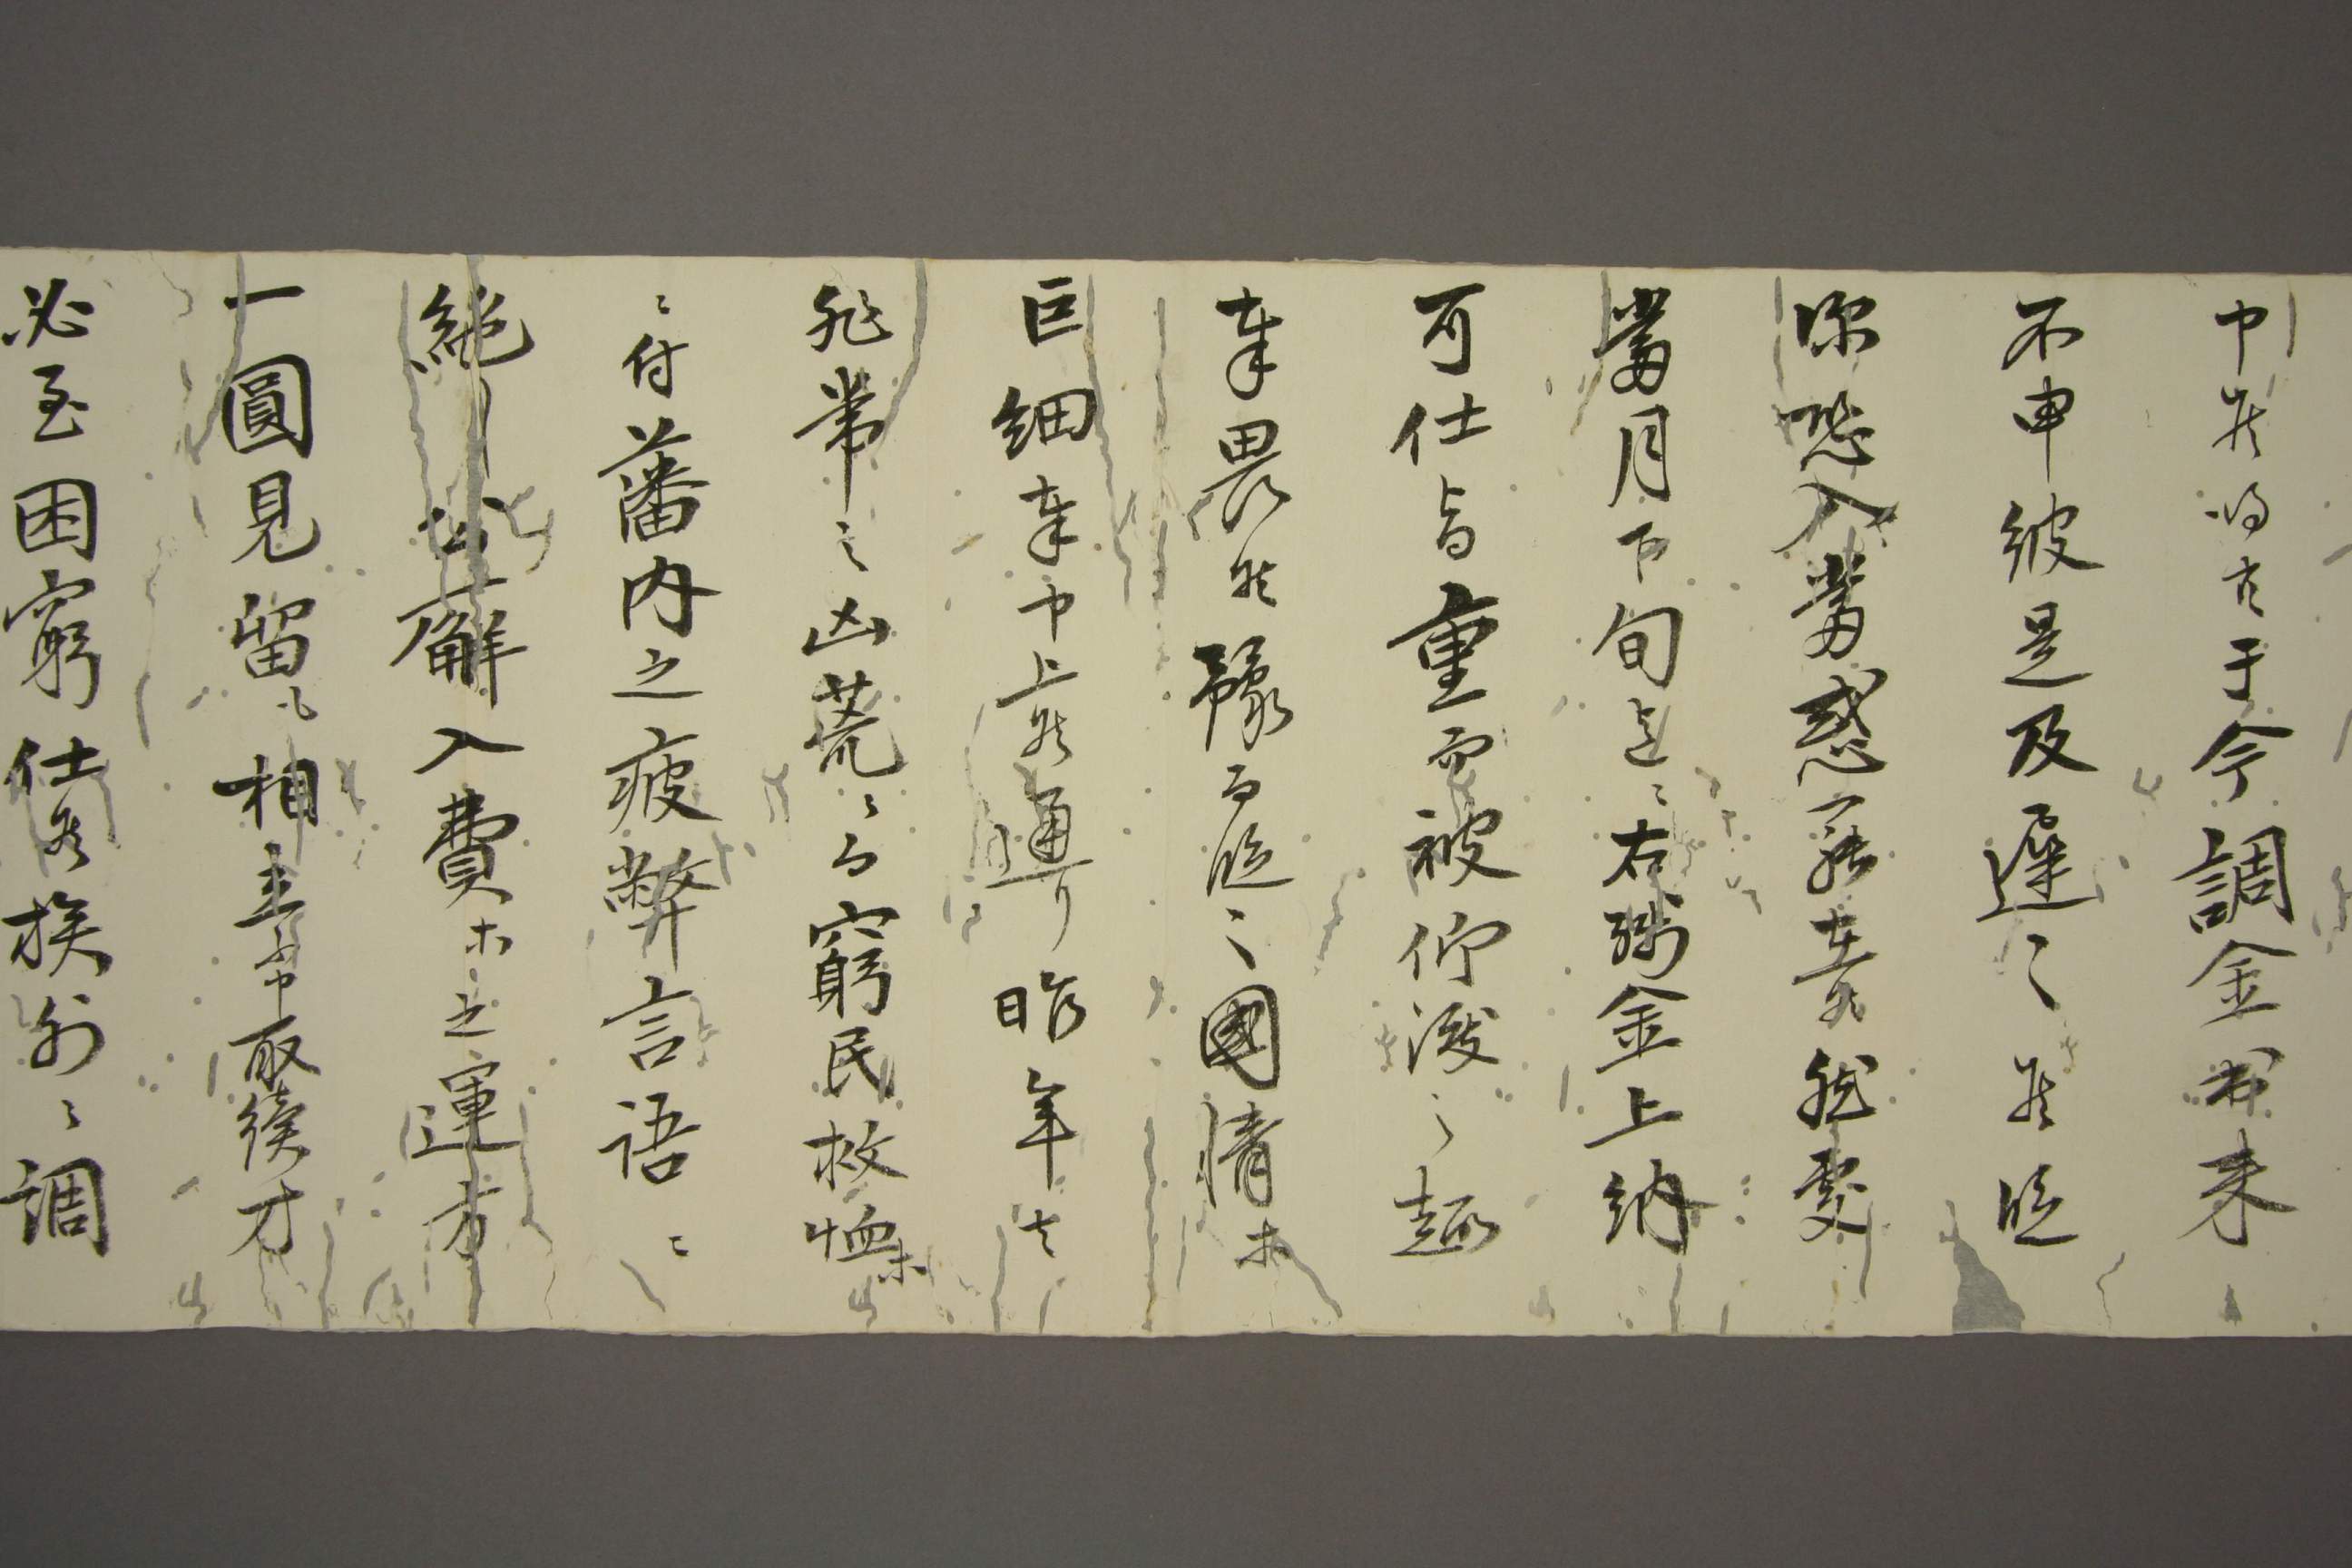 申候得共于今調金出来
不申彼是及遅々候段
深恐入當惑罷在候然處
當月下旬迄ニ右残金上納
可仕旨重而被仰渡之趣
奉畏候豫而従之國情等
巨細奉申上候通リ昨年者
非常之凶荒ニ而窮民救恤等
ニ付藩内之疲弊言語ニ
絶シ公廨入費等之運方
一圓見留も相立不申取續方
必至困窮仕候折柄ニ調